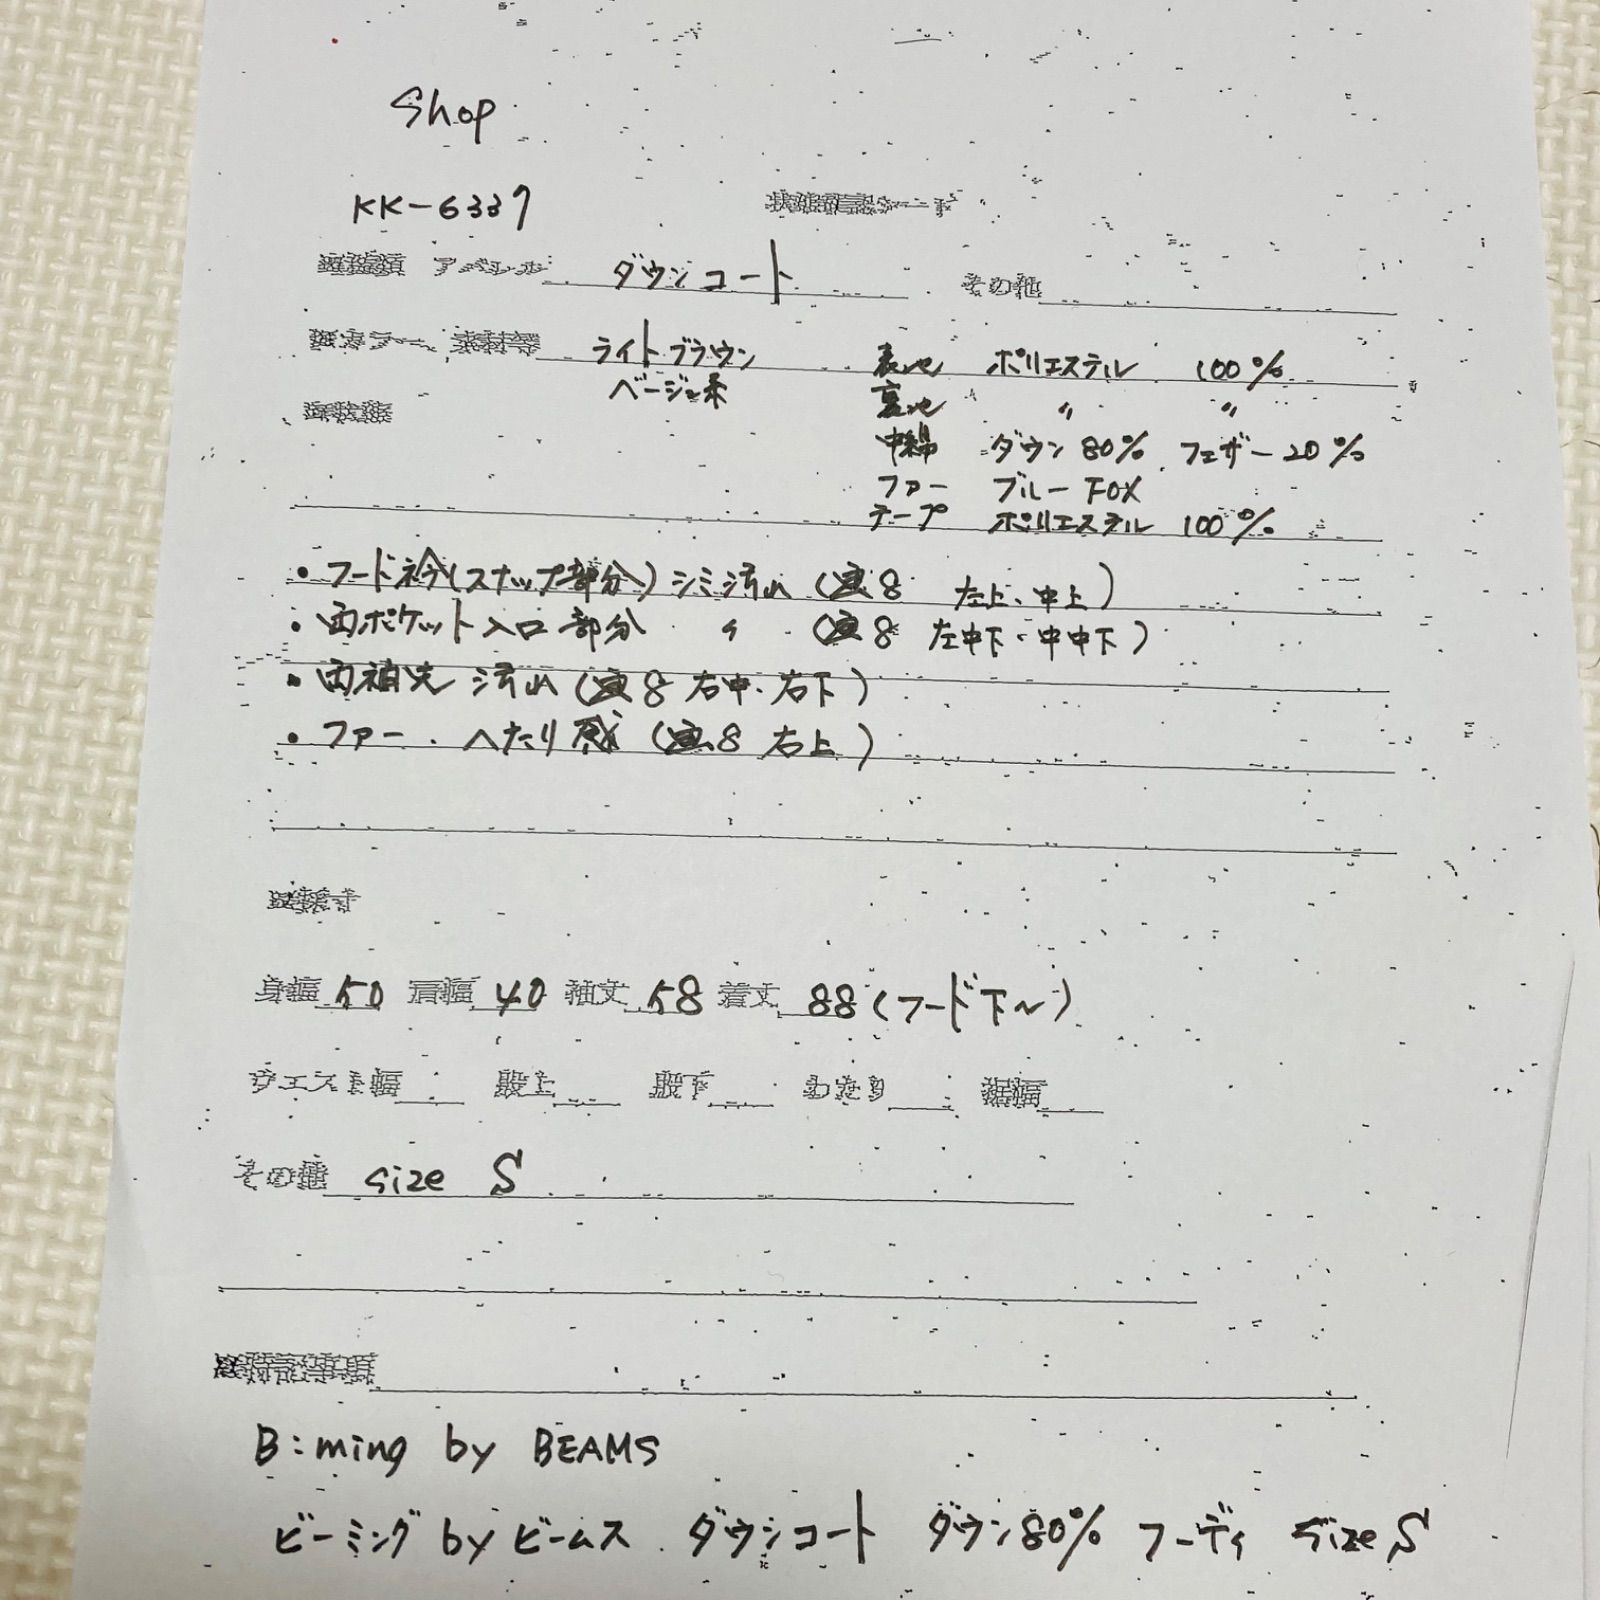 Shop
KK-6337 状態確認シート
アパレル ダウンコート その他
カラー、素材等 ライトブラウン 表地 ポリエステル 100%
ベージュ系 裏地 〃 〃
状態
中綿 ダウン 80% フェザー 20%
ファー ブルーFOX
テープ ポリエステル 100%
・フード衿(スナップ部分)シミ汚れ(画8 左上、中上)
・両ポケット入口部分 〃 (画8 左中下・中中下)
・両袖先 汚れ(画8 右中・右下)
・ファー、へたり感(画8 右上)
採寸
身幅 50 肩幅 40 袖丈 58 着丈 88(フード下〜)
ウエスト幅 股上 股下 わたり 裾幅
その他 size S
特記事項
B:ming by BEAMS
ビーミング by ビームス ダウンコート ダウン80% フーディ size S